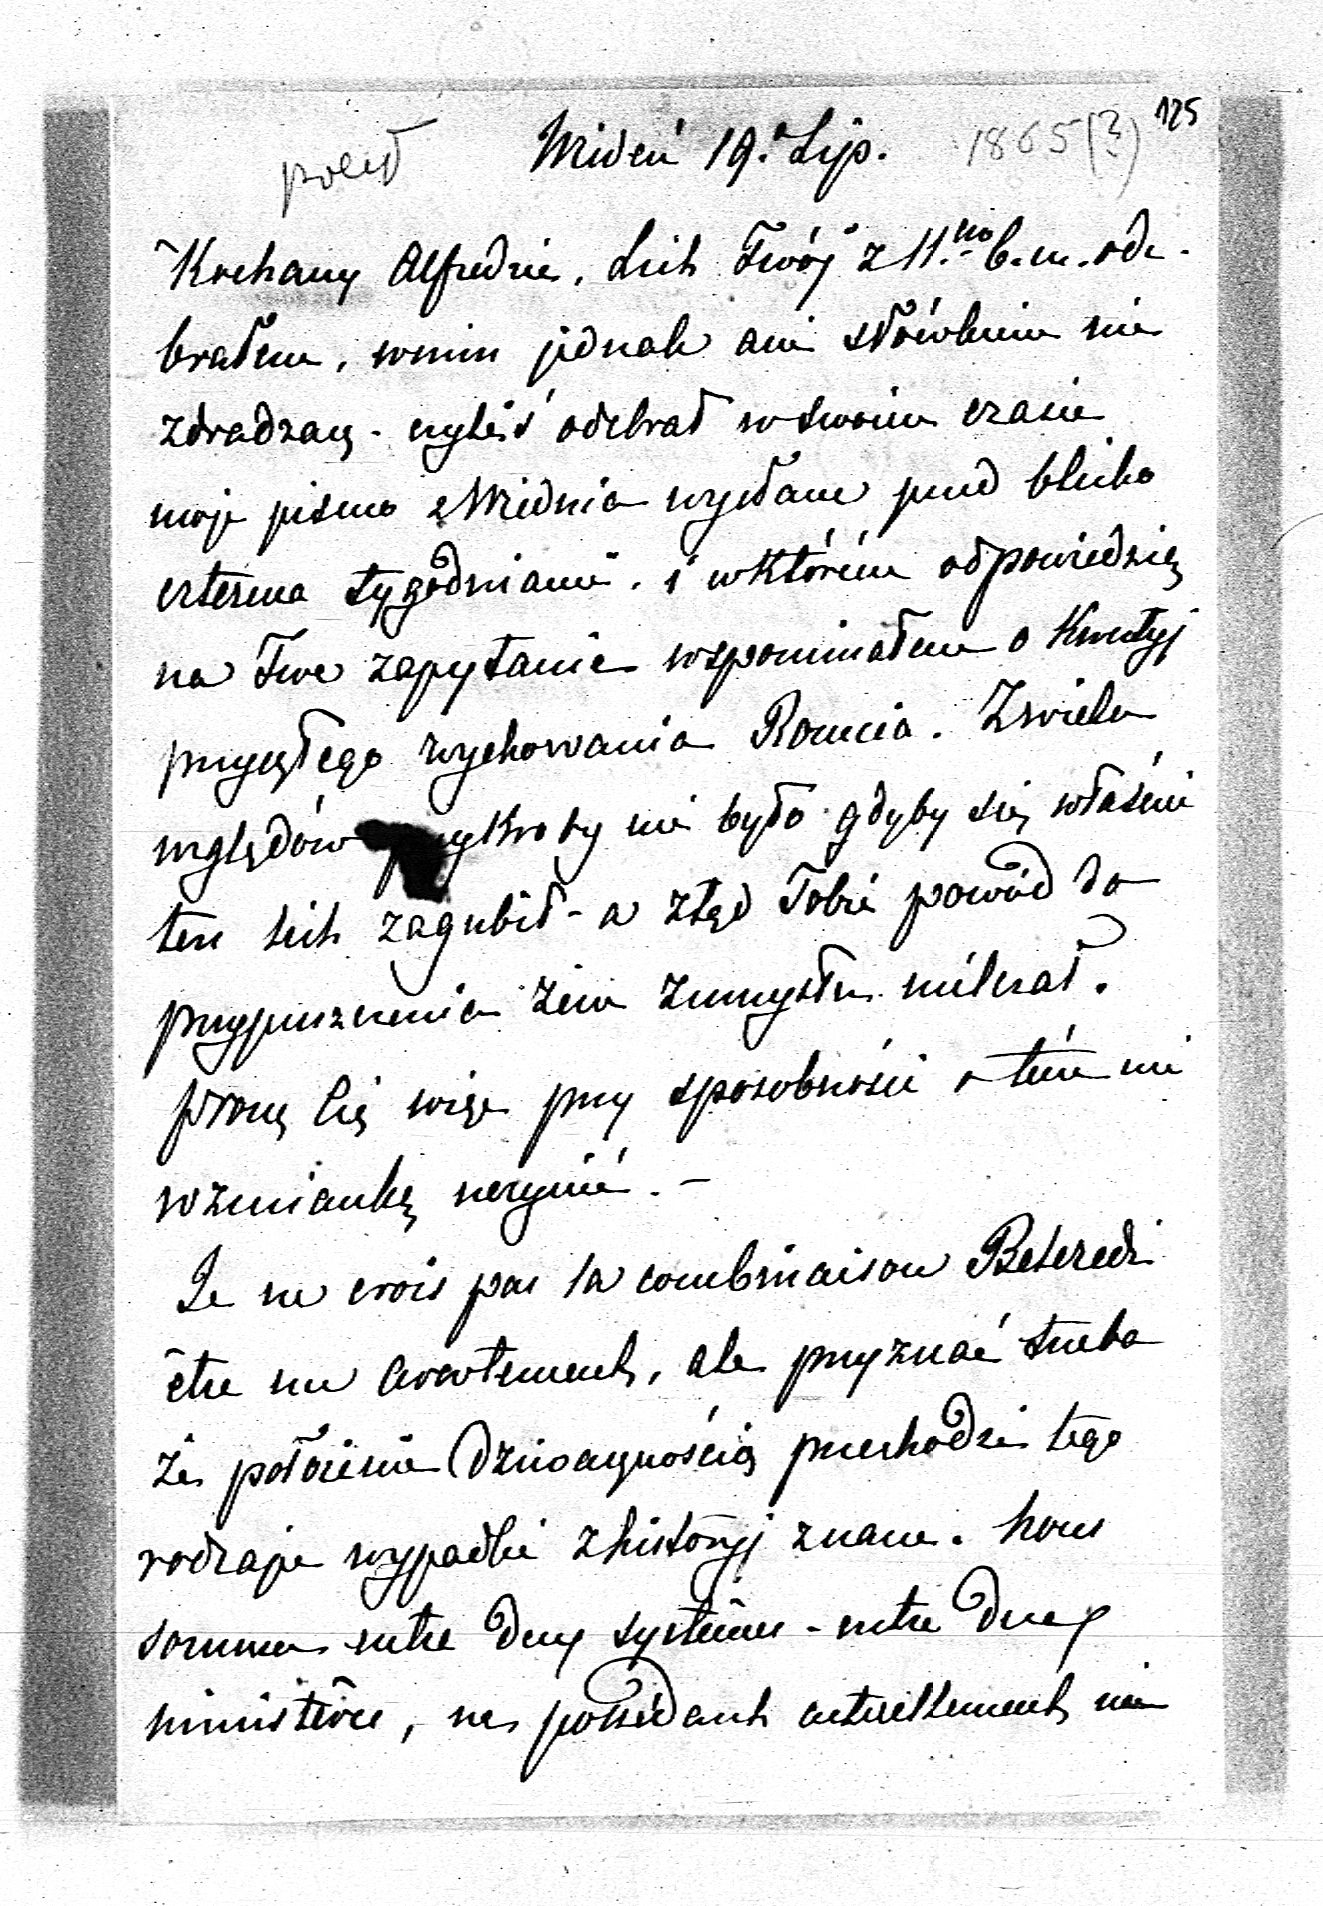 125
Wideń 19.º Lip. 1865(?)
Kochany Alfredzie, List Twój z 11.no b.m. ode-
brałem, w nim jednak ani słówkiem nie
zdradzasz - czyliś odebrał w swoim czasie
moje pismo z Widnia wysłane przed blisko
czterma tygodniami, i w którém odpowiedzią
na Twe zapytanie wspominałem o kwestyj
przyszłego wychowania Romcia. Z wielu
względów przykro by mi było gdyby się właśnie
ten list zagubił - a ztąd Tobie powód do
przypuszczenia żem z umysłu milczał.
proszę Cię więc przy sposobności o tém mi
wzmiankę uczynić. -
Je ne crois pas la combinaison Belcredi
être un avortement, ale przyznać trzeba
że położenie dziwacznością przechodzi tego
rodzaju wypadki z historyj znane. Nous
sommes entre deux systèmes - entre deux
ministères, ne possédant actuellement ni